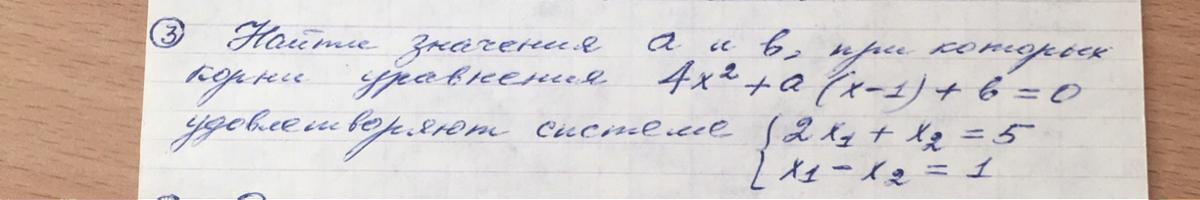 ③ Найти значения a и b, при которых
корни уравнения 4x² + a (x-1) + b = 0
удовлетворяют системе { 2x₁ + x₂ = 5
x₁ - x₂ = 1